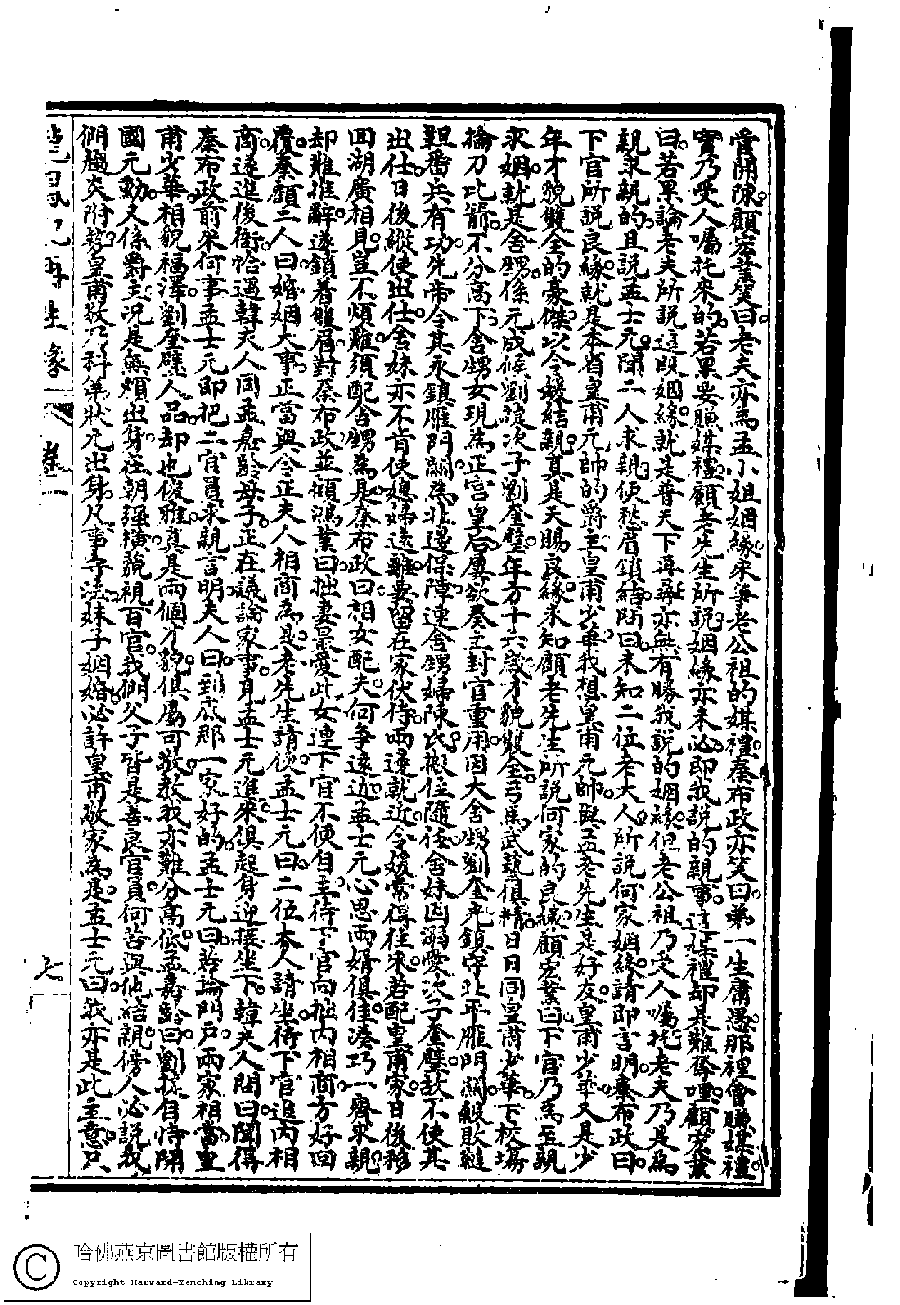 嘗開陳顧宏業笑曰老夫亦為孟小姐姻緣來筭老公祖的媒禮秦布政亦笑曰弟一生庸愚那裡會賺媒禮
實乃受人囑托來的若果要賺媒禮顧老先生所說姻緣亦未必即我說的親事這媒禮却是難得哩顧宏業
曰若果論老夫所說這段姻緣就是普天下再尋亦無有勝我說的姻緣但老公祖乃受人囑托老夫乃是為
親來親的且說孟士元聞二人求親便愁眉鎖結問曰未知二位老大人所說何家姻緣請即言明秦布政曰
下官所說良緣就是本省皇甫元帥的爵主皇甫少華我想皇甫元帥與孟老先生是好友皇甫少華又是少
年才貌雙全的豪傑以令嬡結親真是天賜良緣未知顧老先生所說何家的良緣顧宏業曰下官乃為至親
求姻就是舍甥係元成侯劉捷次子劉奎璧年方十六歲才貌雙全弓馬武藝俱精日日同皇甫少華下校場
掄刀比箭不分高下舍甥女現為正宮皇后屢欲奏主封官重用因大舍甥劉奎光鎮守北平雁門關殺敗韃
靼番兵有功先帝令其永鎮雁門關為北邊保障連舍甥婦陳氏搬往隨任舍妹因溺愛次子奎璧故不使其
出仕日後縱使出仕舍妹亦不肯使媳婦遠離要留在家伏侍兩邊就近令嬡常得往來若配皇甫家日後移
回湖廣相見豈不煩難須配舍甥為是秦布政曰相女配夫何爭遠近孟士元心思兩婿俱佳湊巧一齊來親
却難推辭遂鎖着雙眉對秦布政並顧鴻業曰拙妻最愛此女連下官不便自主待下官向拙內相商方好回
覆秦顧二人曰婚姻大事正當與令正夫人相商為是老先生請便孟士元曰二位大人請坐待下官進內相
商遂進後衙恰遇韓夫人同孟嘉齡母子正在議論家事見孟士元進來俱起身迎接坐下韓夫人問曰聞得
秦布政前來何事孟士元即把二官員來親言明夫人曰到底那一家好的孟士元曰若論門戶兩家相當皇
甫少華相貌福澤劉奎璧人品却也俊雅真是兩個才貌俱屬可敬教我亦難分高低孟嘉齡曰劉捷自恃開
國元勳又係爵主況是無煩出身在朝強橫藐視百官我們父子皆是善良官員何苦與他結親傍人必說我
們趨炎附勢皇甫敬乃科第狀元出身凡事守法妹子姻婚必許皇甫敬家為是孟士元曰我亦是此主意只
再生緣 卷一
七
哈佛燕京圖書館版權所有
Copyright Harvard-Yenching Library